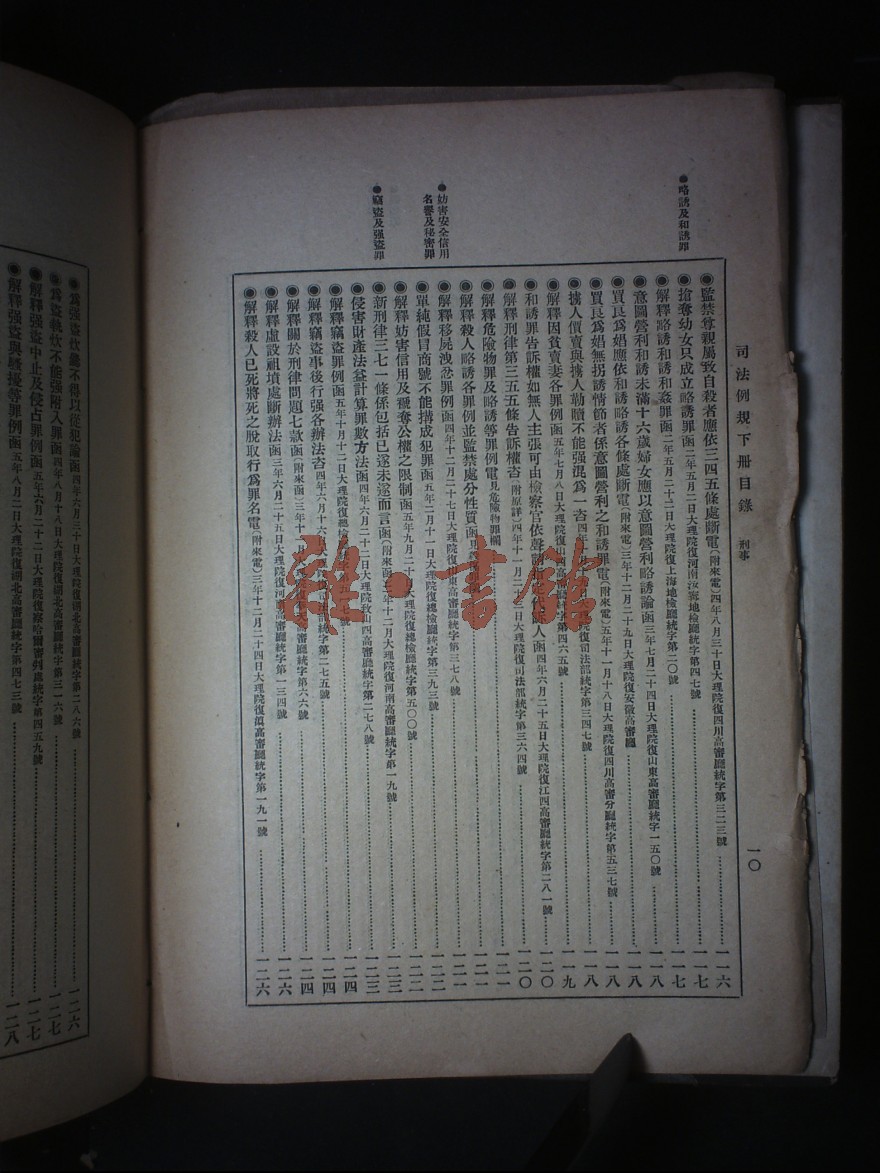 司法例規下冊目錄 刑事 一〇
●略誘及和誘罪
●妨害安全信用名譽及秘密罪
●竊盜及强盜罪
◉監禁尊親屬致自殺者應依三四五條處斷電(附來電)四年八月三十日大理院復四川高審廳統字第三二三號 一一六
◉搶奪幼女只成立略誘罪函二年五月二日大理院復河南汝 地檢廳統字第四七號 一一七
◉解釋略誘和誘和姦罪函二年五月二十二日大理院復上海地檢廳統字第二〇號 一一七
◉意圖營利和誘未滿十六歲婦女應以意圖營利略誘論函三年七月二十四日大理院復山東高審廳統字一五〇號 一一八
◉買良爲娼應依和誘略誘各條處斷電(附來電)三年十二月二十九日大理院復安徽高審廳 一一八
◉買良爲娼無拐誘情節者係意圖營利之和誘罪電(附來電)五年十一月十八日大理院復四川高審分廳統字第五三七號 一一八
◉擄人價賣與擄人勒贖不能强混爲一咨四年 大理院復司法部統字第三四七號 一一九
◉解釋因貧賣妻各罪例函五年七月八日大理院復山西高審廳統字第四六五號 一二〇
◉和誘罪告訴權如無人主張可由檢察官依聲請指定代訴人函四年六月二十五日大理院復江西高審廳統字第二八一號 一二〇
◉解釋刑律第三五五條告訴權咨(附原詳)四年十一月二十三日大理院復司法部統字第三六四號 一二〇
◉解釋危險物罪及略誘等罪例電見危險物罪欄 一二一
◉解釋殺人略誘各罪例並監禁處分性質函 一二一
◉解釋移屍洩忿罪例函四年十二月二十七日大理院復山東高審廳統字第三七八號 一二一
◉單純假冒商號不能搆成犯罪函五年二月十一日大理院復總檢廳統字第三九三號 一二二
◉解釋妨害信用及褫奪公權之限制函五年九月二十 大理院復總檢廳統字第五〇〇號 一二二
◉新刑律三七一條係包括已遂未遂而言函(附來函)二年十二月大理院復河南高審廳統字第一九號 一二三
◉侵害財產法益計算罪數方法函四年六月二十二日大理院致山西高審廳統字第二七八號 一二三
◉解釋竊盜罪例函五年十月十二日大理院復總檢廳統字第五 號 一二四
◉解釋竊盜事後行强各辦法咨四年六月十六 部統字第二七五號 一二四
◉解釋關於刑律問題七款函(附來函)三年十 高審廳統字第六六號 一二四
◉解釋虛設祖墳處斷辦法函三年六月二十五日大理院復河南高審廳統字第一三四號 一二六
◉解釋殺人已死將死之脫取行爲罪名電(附來電)三年十二月二十四日大理院復 高審廳統字第一九一號 一二六
啟·書館
◉爲强盜炊飯不得以從犯論函四年六月三十日大理院復湖北高審廳統字第二八六號 一二六
◉爲盜執炊不能强附入罪函四年八月十八日大理院復湖北高審廳統字第三一六號 一二七
◉解釋强盜中止及侵占罪例函五年六月二十二日大理院復察哈爾審判處統字第四五九號 一二七
◉解釋强盜與騷擾等罪例函五年八月二日大理院復湖北高審廳統字第四七三號 一二八